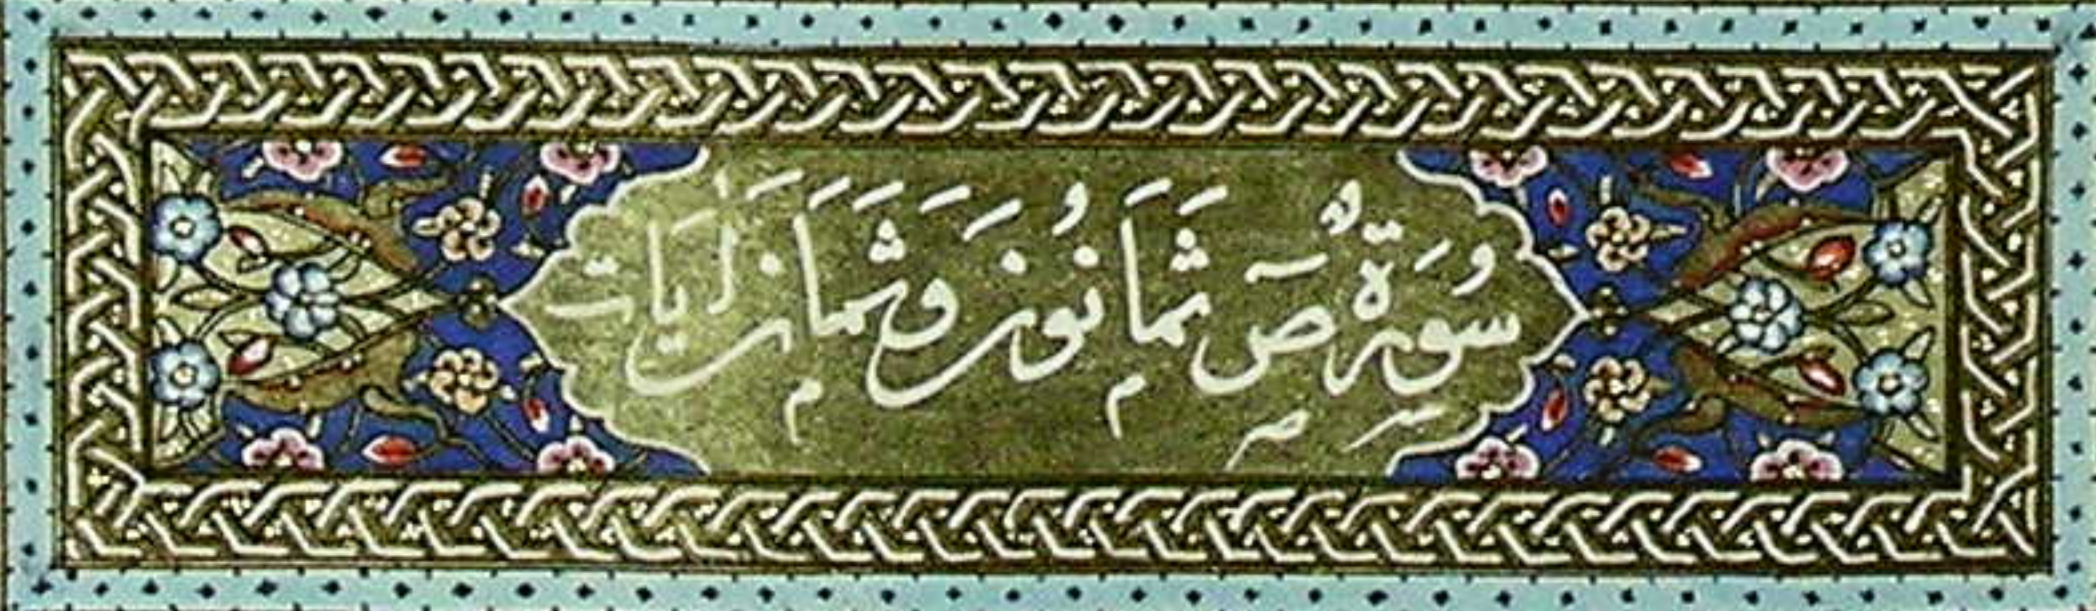 سُورَةُ صٓ ثَمَانُونَ وَثَمَانَ اٰيَات